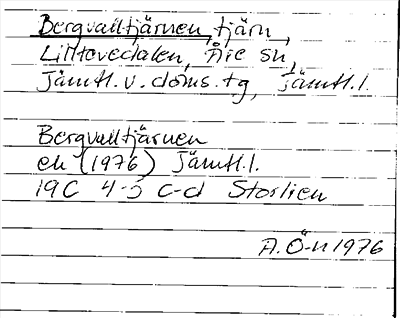 Bergvalltjärnen, tjärn,
Lilltevedalen, Åre sn,
Jämtl.v. doms. tg, Jämtl.l.
Bergvalltjärnen
ek (1976) Jämtl.l.
19C 4-5 c-d Storlien
A.Ö-n 1976